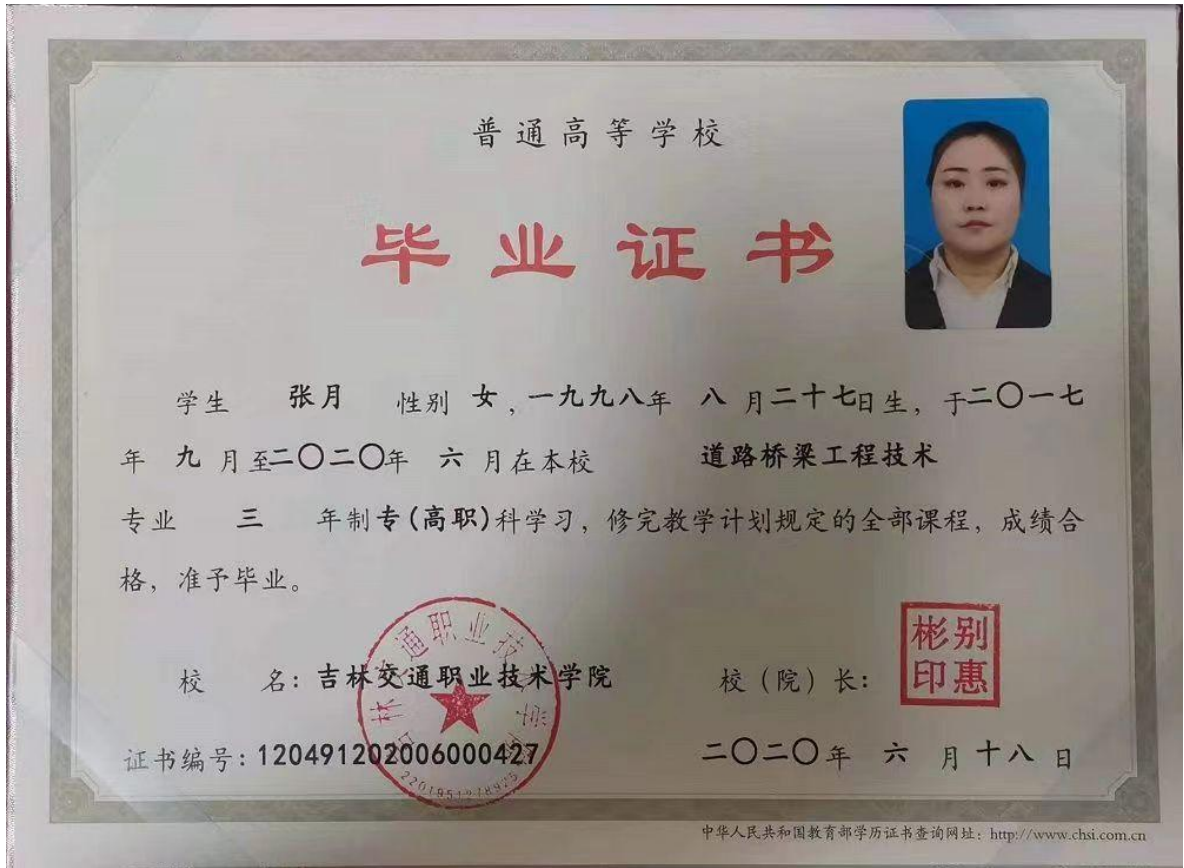 普通高等学校
毕业证书
学生 张月 性别 女，一九九八年 八 月二十七日生，于二〇一七
年 九 月至二〇二〇年 六 月在本校 道路桥梁工程技术
专业 三 年制专(高职)科学习，修完教学计划规定的全部课程，成绩合
格，准予毕业。
校 名：吉林交通职业技术学院 校（院）长：
彬别
印惠
证书编号：120491202006000427 二〇二〇年 六 月十八日
中华人民共和国教育部学历证书查询网址：http://www.chsi.com.cn